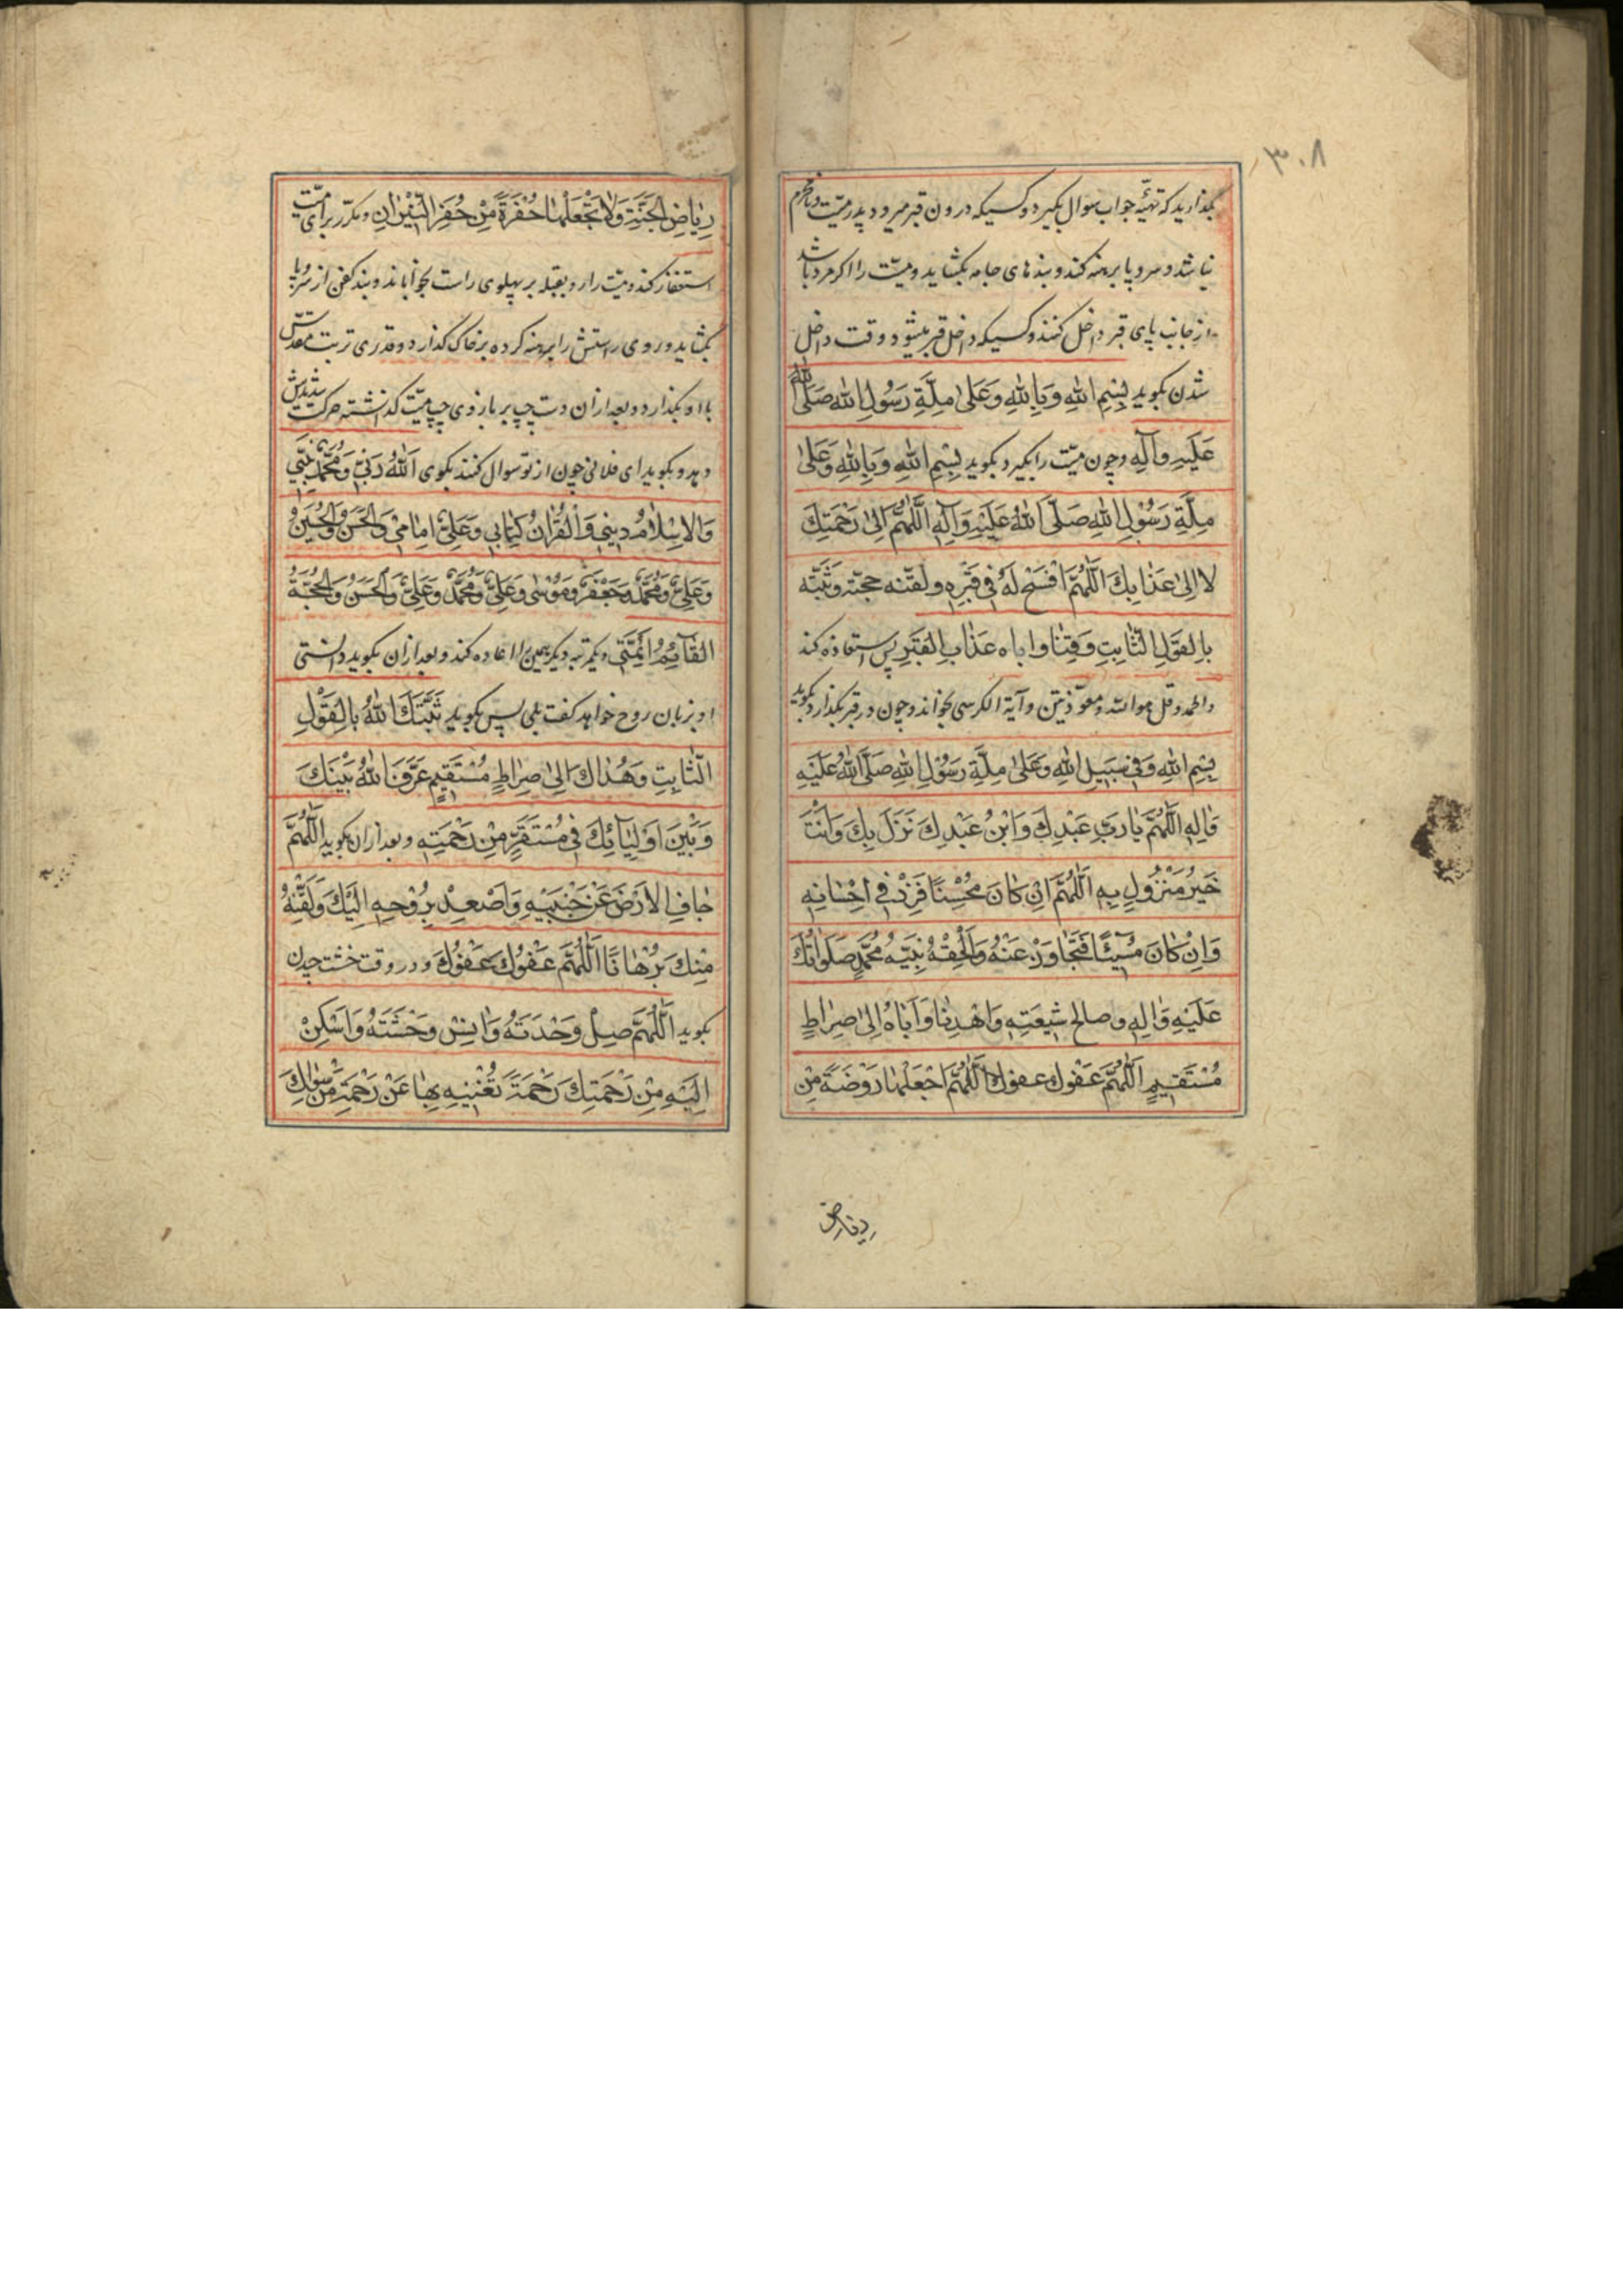 ۳۰۸
بگذارید که تهیّه جواب سوال بگیرد و کسیکه درون قبر میرود پدر میّت و نامحرم
نباشد و سر و پا برهنه کند و بندهای جامه بگشاید و میّت را اگر مرد باشد
از جانب پای قبر داخل کنند و کسیکه داخل قبر میشود وقت داخل
شدن بگوید بِسْمِ اللهِ وَبِاللهِ وَعَلیٰ مِلَّةِ رَسُولِ اللهِ صَلَّی اللهُ
عَلَیْهِ وَآلِهِ و چون میّت را بگیرد بگوید بِسْمِ اللهِ وَبِاللهِ وَعَلیٰ
مِلَّةِ رَسُوْلِ اللهِ صَلَّی اللهُ عَلَیْهِ وَآلِهِ اَللّٰهُمَّ اِلیٰ رَحْمَتِكَ
لا اِلیٰ عَذٰابِكَ اَللّٰهُمَّ افْسَحْ لَهُ فِی قَبْرِهِ ولقّنه حجّته وَثَبِّته
بِالْقَوْلِ الثّٰابِتِ وَقِنٰا واباه عَذٰابَ الْقَبْرِ پس استعاذه کند
و الحمد و قل هو الله و معوّذتین و آیة الکرسی بخواند و چون در قبر بگذارد بگوید
بِسْمِ اللهِ وَفِی سَبِیْلِ اللهِ وَعَلیٰ مِلَّةِ رَسُوْلِ اللهِ صَلَّی اللهُ عَلَیْهِ
وَاٰلِهِ اَللّٰهُمَّ یٰا رَبِّ عَبْدِكَ وَابْنُ عَبْدِكَ نَزَلَ بِكَ وَاَنْتَ
خَیْرُ مَنْزُوْلٍ بِهِ اَللّٰهُمَّ اِنْ كٰانَ مُحْسِنًا فَزِدْ فِی اِحْسٰانِهِ
وَاِنْ كٰانَ مُسِیْئًا فَتَجٰاوَزْ عَنْهُ وَاَلْحِقْهُ بِنَبِیِّهِ مُحَمَّدٍ صَلَوٰاتُكَ
عَلَیْهِ وَاٰلِهِ و صالح شِیْعَتِهِ وَاهْدِنٰا وَاَبٰاهُ اِلیٰ صِرٰاطٍ
مُسْتَقِیْمٍ اَللّٰهُمَّ عَفْوَكَ عَفْوَكَ اَللّٰهُمَّ اجْعَلْهٰا رَوْضَةً مِنْ
ریاض
رِیٰاضِ الْجَنَّةِ وَلٰا تَجْعَلْهٰا حُفْرَةً مِنْ حُفَرِ النِّیْرٰانِ و مکرّر برای میّت
استغفار کند و میّت را رو بقبله بر پهلوی راست بخواباند و بند کفن از سر و پا
بگشاید و روی راستش را برهنه کرده بر خاک گذارد و قدری تربت مقدّس
با او بگذارد و بعد از آن دست چپ بر بازوی چپ میّت گذاشته حرکت شدیدش
دهد و بگوید ای فلانی چون از تو سوال کنند بگوی اَللهُ رَبِّی وَمُحَمَّدٌ نَبِیِّی
وَالْاِسْلٰامُ دِیْنِی وَالْقُرْاٰنُ كِتٰابِی وَعَلِیٌّ اِمٰامِی وَالْحَسَنُ وَالْحُسَیْنُ
وَعَلِیٌّ وَمُحَمَّدٌ وَجَعْفَرٌ وَمُوْسٰی وَعَلِیٌّ وَمُحَمَّدٌ وَعَلِیٌّ وَالْحَسَنُ وَالْحُجَّةُ
الْقٰآئِمُ اَئِمَّتِی و یکمرتبه دیگر همین را اعاده کند و بعد از ان بگوید دانستی
او بزبان روح خواهد گفت بلی پس بگوید ثَبَّتَكَ اللهُ بِالْقَوْلِ
الثّٰابِتِ وَهَدٰاكَ اِلیٰ صِرٰاطٍ مُسْتَقِیْمٍ عَرَّفَ اللهُ بَیْنَكَ
وَبَیْنَ اَوْلِیٰآئِكَ فِی مُسْتَقَرٍّ مِنْ رَحْمَتِهِ و بعد از ان بگوید اَللّٰهُمَّ
جٰافِ الْاَرْضَ عَنْ جَنْبَیْهِ وَاصْعِدْ بِرُوْحِهِ اِلَیْكَ وَلَقِّنْهُ
مِنْكَ بُرْهٰانًا اَللّٰهُمَّ عَفْوَكَ عَفْوَكَ و در وقت خشت چیدن
بگوید اَللّٰهُمَّ صِلْ وَحْدَتَهُ وَاٰنِسْ وَحْشَتَهُ وَاَسْكِنْ
اِلَیْهِ مِنْ رَحْمَتِكَ رَحْمَةً تُغْنِیْهِ بِهٰا عَنْ رَحْمَةِ مَنْ سِوٰاكَ